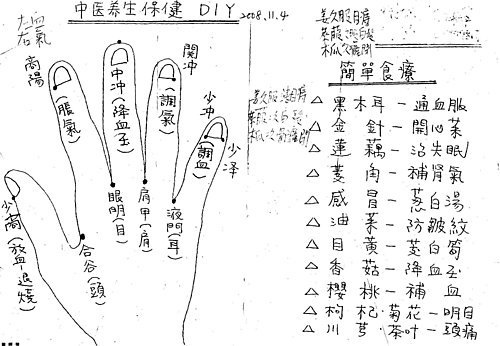 中医养生保健 DIY 2008.11.4
左血
右氣
商陽
(脹氣)
中冲
(降血压)
関冲
(調氣)
少冲
(調血)
少泽
少商(放血-退燒)
合谷(頭)
眼明(目)
肩甲(肩)
液门(耳)
簡單食療
△ 黑木耳－通血脈
△ 金針－開心菜
△ 蓮藕－治失眠
△ 菱角－補腎氣
△ 感冒－葱白湯
△ 油菜－防皺紋
△ 目黃－茭白筍
△ 香菇－降血压
△ 櫻桃－補血
△ 枸杞·菊花－明目
△ 川芎·茶叶－頭痛